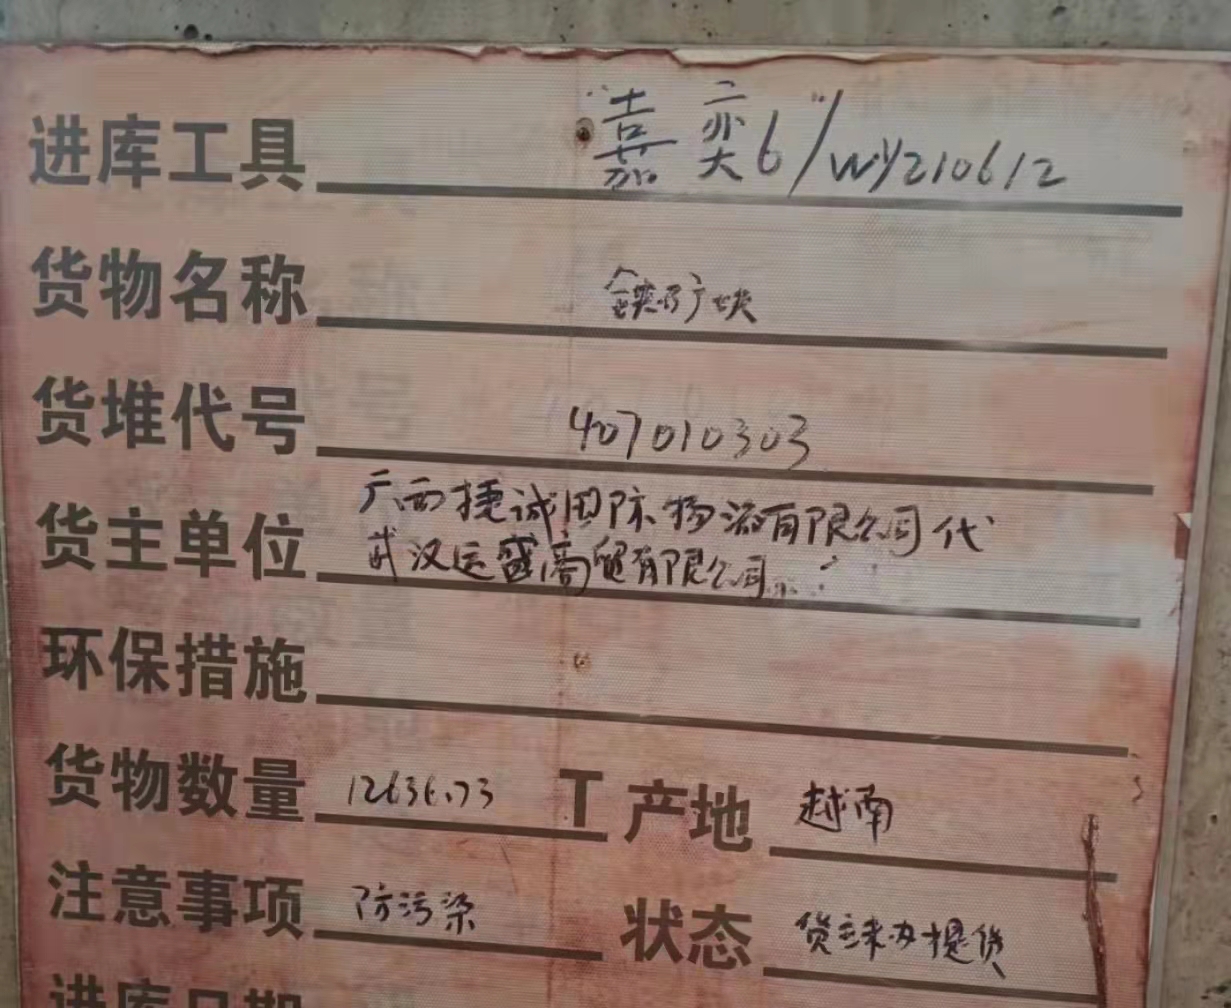 进库工具 嘉奕6"/WY210612
货物名称 铁矿块
货堆代号 407010303
货主单位 广西捷诚国际物流有限公司代
武汉运盛商贸有限公司
环保措施
货物数量 12636.73 T 产地 越南
注意事项 防污染 状态 货主未办提货
进库日期